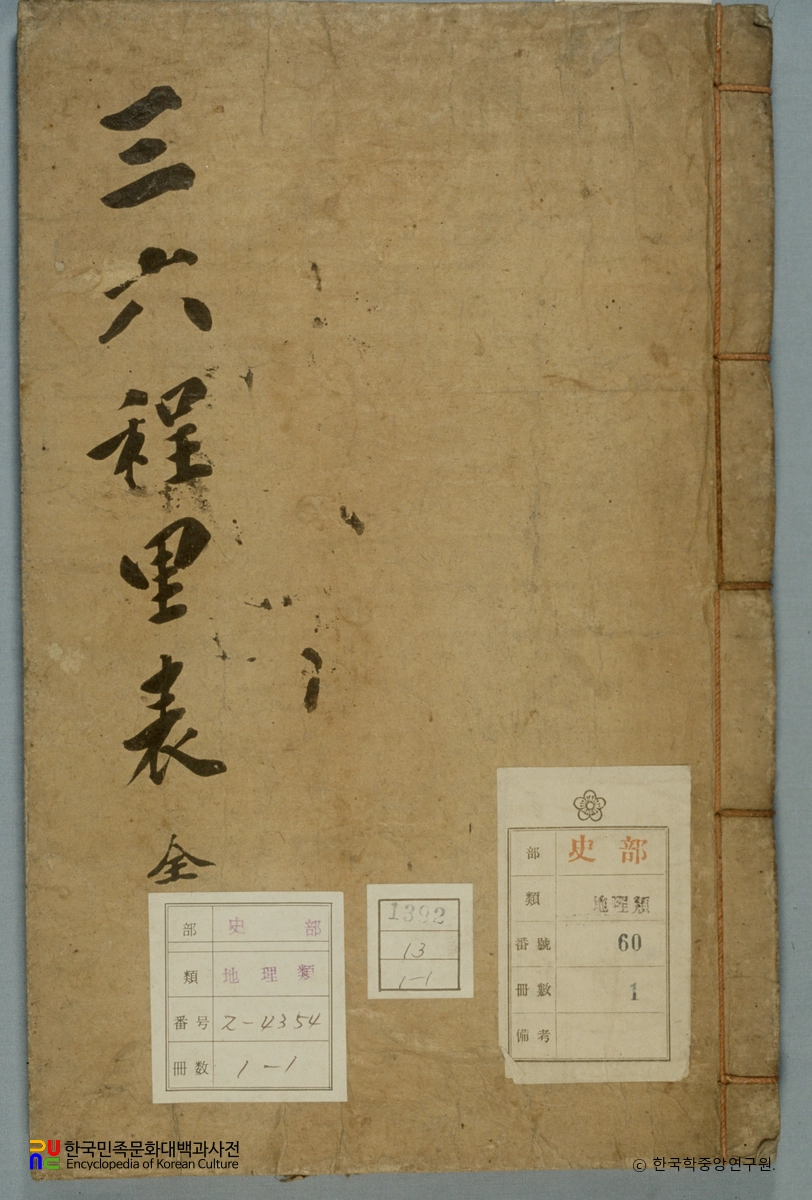 三六程里表 全
部 史部
類 地理類
番号 Z-4354
冊数 1-1
1392
13
1-1
部 史部
類 地理類
番號 60
冊數 1
備考
한국민족문화대백과사전
Encyclopedia of Korean Culture
© 한국학중앙연구원.